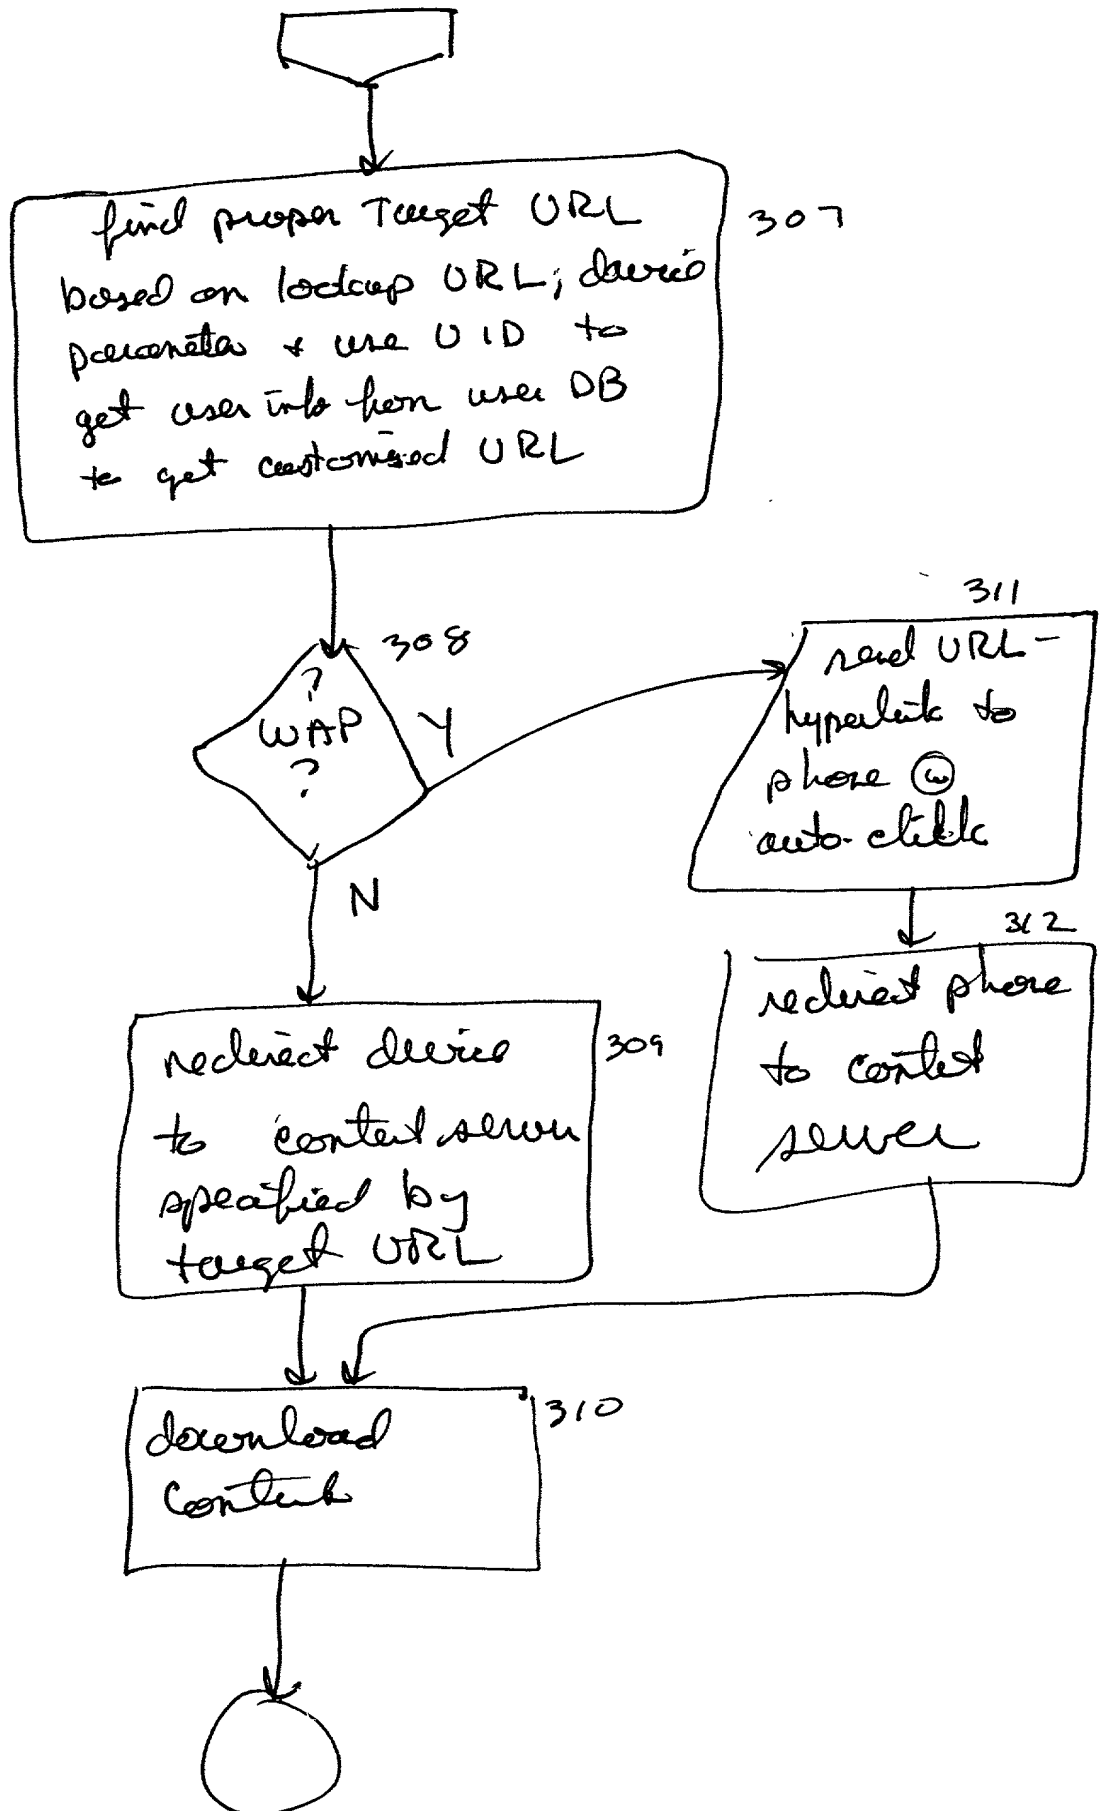 find proper Target URL
307
based on lookup URL; device
parameter + use UID to
get user info from user DB
to get customized URL
308
?
WAP
?
Y
N
311
send URL -
hyperlink to
phone w
auto-click
312
redirect phone
to content
server
redirect device
309
to content server
specified by
target URL
download
310
content